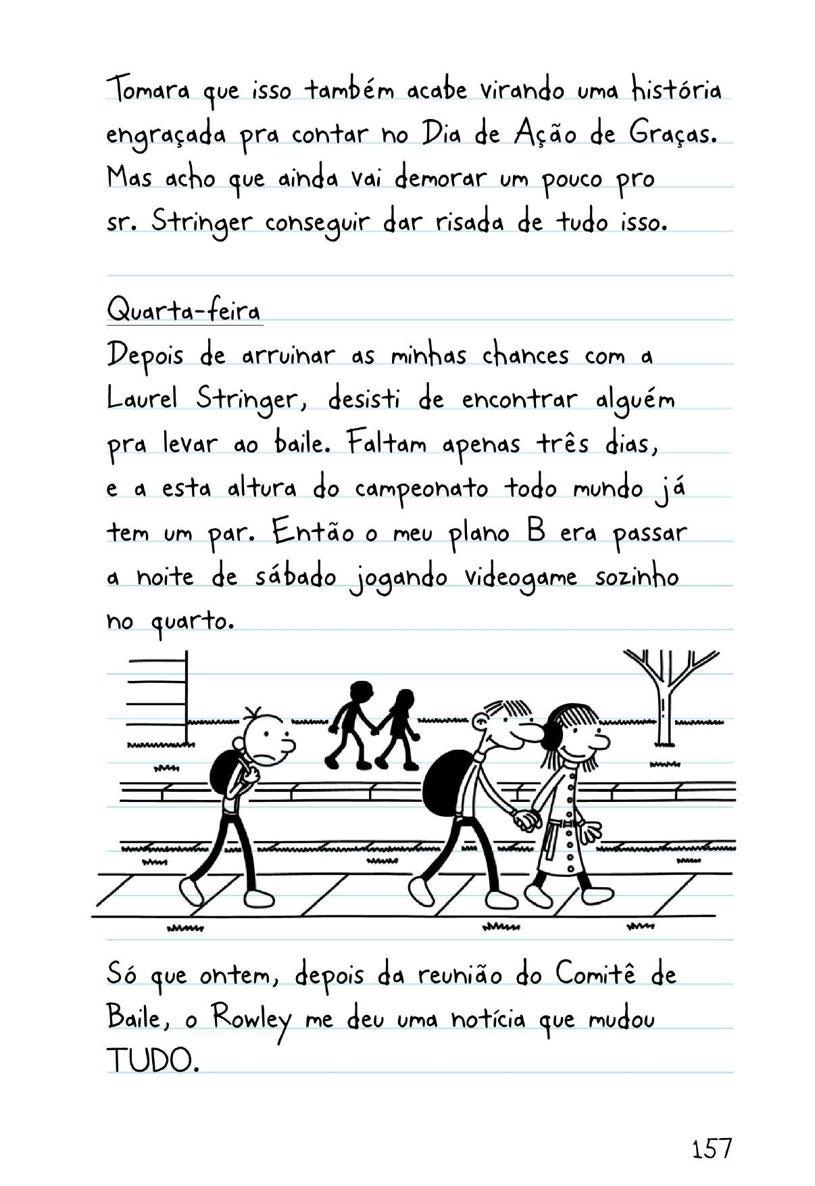 Tomara que isso também acabe virando uma história
engraçada pra contar no Dia de Ação de Graças.
Mas acho que ainda vai demorar um pouco pro
sr. Stringer conseguir dar risada de tudo isso.
Quarta-feira
Depois de arruinar as minhas chances com a
Laurel Stringer, desisti de encontrar alguém
pra levar ao baile. Faltam apenas três dias,
e a esta altura do campeonato todo mundo já
tem um par. Então o meu plano B era passar
a noite de sábado jogando videogame sozinho
no quarto.
Só que ontem, depois da reunião do Comitê de
Baile, o Rowley me deu uma notícia que mudou
TUDO.
157